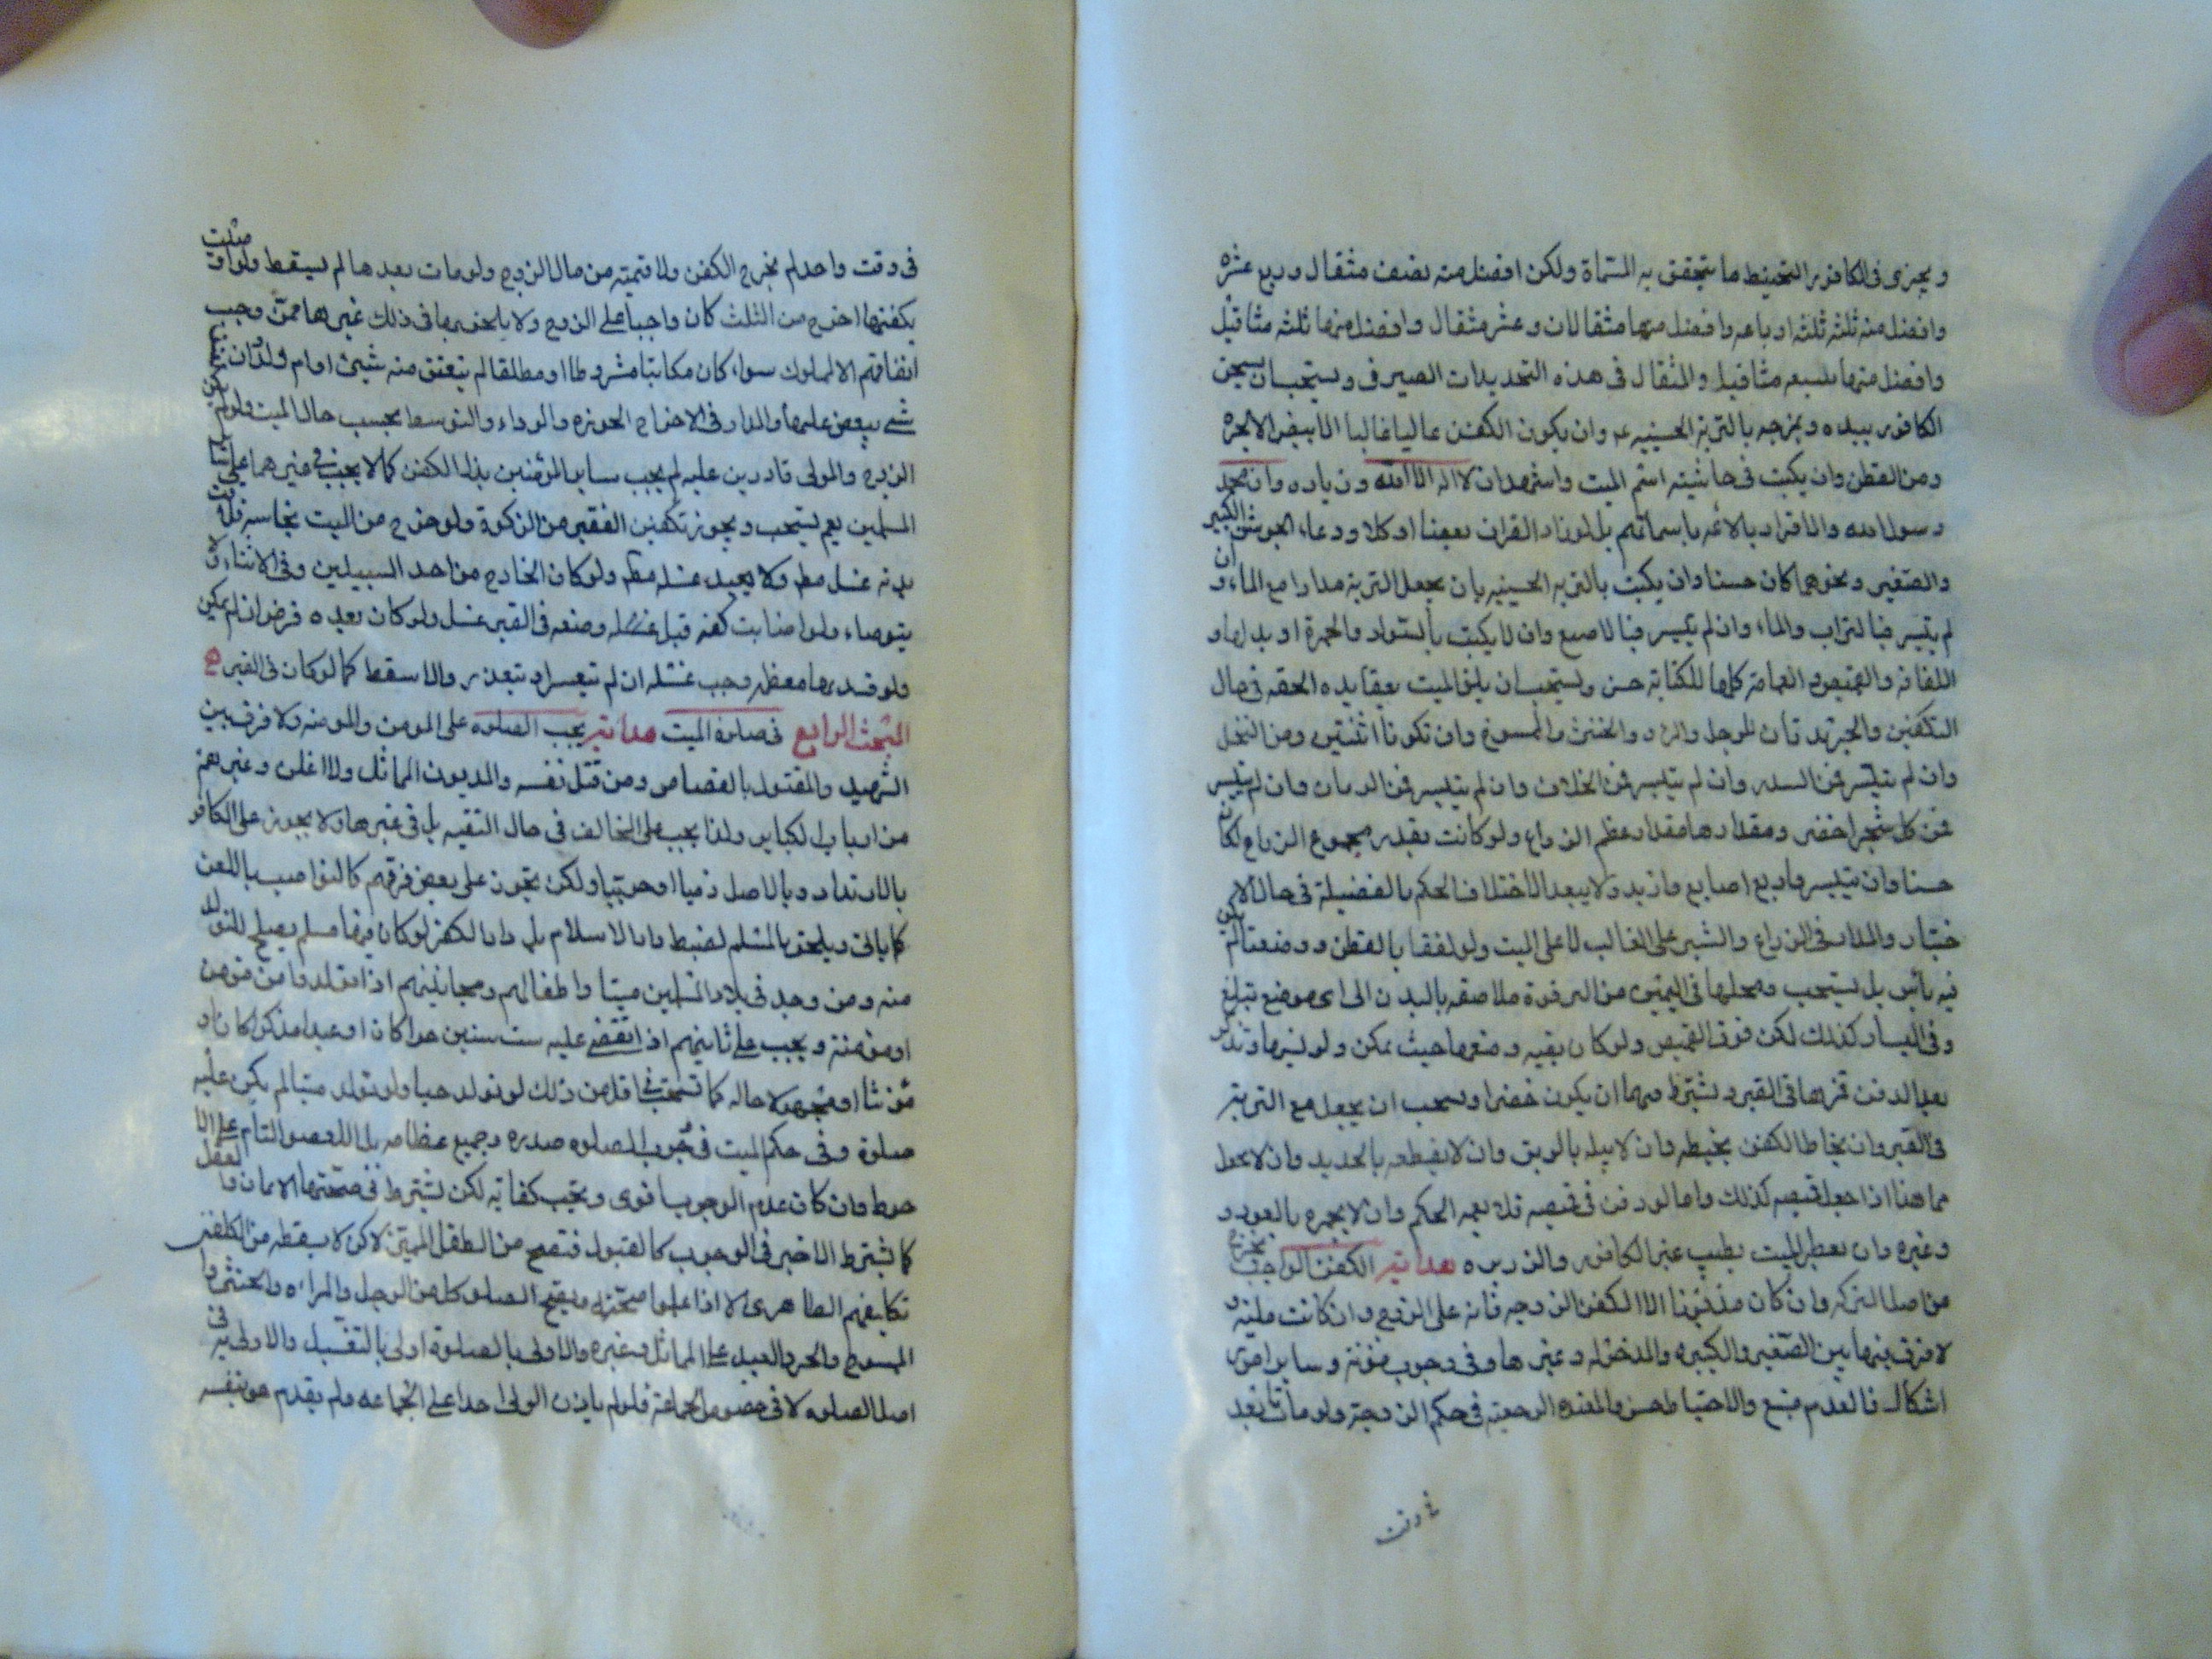 ويجزى فى الكافور التحنيط ما يتحقق به المسماة ولكن افضل منه نصف مثقال وربع عشره
وافضل منه ثلثه ثلثه ارباعه وافضل منها مثقالان وعشر مثقال وافضل منها ثلثه مثاقيل
وافضل منها سبعه مثاقيل والمثقال فى هذه التحديدات الصيرفى ويستحب ان يسحق
الكافور بيده ويمزجه بالتربة الحسينيه وان يكون الكفن عاليا غالبا الابيض الا الحبره
ومن القطن وان يكتب فى حاشيته اسم الميت واشهد ان لا اله الا الله وزياده وان محمد
رسول الله والاقرار بالائمه باسمائهم بل لو زاد القران بعضا او كلا ودعاء الجوشن الكبير
والصغير ونحوهما كان حسنا وان يكتب بالتربه الحسينيه بان يجعل التربة مدارا مع الماء وان
لم يتيسر فبالتراب والماء وان لم يتيسر فبالاصبع وان لا يكتب بالسواد والحمرة او
اللفافه والقميص والعمامة كلها للكتابة حسن ويستحب ان يلقن الميت بعقايده الحقه فى حال
التكفين والجريدتان للرجل والخنثى والممسوخ وان تكونا اثنتين ومن النخل
وان لم يتيسر فمن السدر وان لم يتيسر فمن الخلاف وان لم يتيسر فمن الرمان وان لم يتيسر
فمن كل شجر اخضر ومقدارها مقدار عظم الذراع ولو كانت بقدر مجموع الذراع لكان
حسنا وان تيسر واربع اصابع فازيد ولا يبعد الاختلاف الحكم بالفضيلة فى حال الا
ختيار والمدار فى الذراع والشبر على الغالب لا على الميت ولو لففا بالقطن ووضعتا لم يكن
فيه باس بل يستحب ومحلها فى اليمين من الترقوة ملاصقه بالبدن الى اى موضع تبلغ
وفى اليسار كذلك لكن فوق القميص ولو كان بقيه وضعها حيث يمكن ولو نسيها وتذكر
بعد الدفن تحرها فى القبر ويشترط فيهما ان يكون خضرا ويستحب ان يجعل مع التربة
فى القبر وان يخاط الكفن بخيطه وان لا يبله بالريق وان لا يقطعه بالحديد وان لا يجعل
هنا اذا جعل قميصه كذلك واما لو دفن فى قميصه فلا يعمه الحكم وان لا يجمره بالعود و
وغيره وان يعطر الميت بطيب غير الكافور والذريره هداية الكفن الواجب يخرج
من اصل التركه وان كان مذنونا الا الكفن الزوجيه فانه على الزوج وان كانت مليئه و
لا فرق بينها بين الصغير والكبيره والمدخوله وغيرها وفى وجوب مؤنة وساير
اشكال فالعدم متبع والاحتياط حسن والمعتده الرجعيه فى حكم الزوجة ولو ماتا بعد
فى وقت
فى وقت واحد لم يخرج الكفن ولا قيمته من مال الزوج ولو مات بعدها لم يسقط ولو اوصت
بكفنها اخرج من الثلث كان واجبا على الزوج ولا يلحق بها فى ذلك غيرها ممن وجب
انفاقهم الا المملوك سواء كان مكاتبا مشروطا او مطلقا لم يتعتق منه شيئ او ام ولد وان
شى ببعض عليها والمدار فى الاخراج الحوزه والرداء والتوسط بحسب حال الميت ولو لم يكن
الزوج والمولى قادرين عليه لم يجب ساير المؤمنين بذل الكفن كما لا يجب فى غيرهما على
المسلمين نعم يستحب ويجوز تكفين الفقير من الزكوة ولو خرج من الميت نجاسه
بدنه غسل مطه ولا يعيد غسله مطه ولو كان الخارج من احد السبيلين وفى الاثناء ولا
يتوضاء ولو اصابت كفنه قبل وضعه فى القبر غسل ولو كان بعده قرض ان لم يمكن
ولو قدرها معظمه وجب غسله ان لم يتعسر او يتعذر والا سقط كما لو كان فى القبر
المبحث الرابع فى صلوة الميت هداية يجب الصلوه على المومن والمومنه ولا فرق بين
الشهيد والمقتول بالقصاص ومن قتل نفسه والمديون المماثل ولا وغيرهم
من ارباب الكباير ولذا يجب على المخالف فى حال التقيه بل فى غيرها ولا يجوز على الكافر
بالارتداد وبالاصل ذميا او حربيا ولكن يجوز على بعض فرقهم كالنواصب باللعن
كما ياتى ويلحق بالمسلم لضبط دار الاسلام بل دار الكفر لو كان فيها مسلم يصلح للتولد
منه ومن وجد فى بلاد المسلمين ميتا واطفالهم ومجانينهم اذا تولدوا من مومن
او مومنة ويجب على ثانيهم اذ انقضى عليه ست سنين حرا كان او عبدا مذكرا كان او
مؤنثا او مجهولا حاله كما تستحب فى اقل من ذلك لو تولد حيا ولو تولد ميتا لم يكن عليه
صلوة وفى حكم الميت فى وجوب الصلوه صدره وجميع عظامه بل العضو التام على الا
حوط وان كان عدم الوجوب اقوى ويجب كفاية لكن يشترط فى صحتها الايمان والعقل
كما يشترط الاخير فى الوجوب كالقبول فتصح من الطفل المميز لاكن لا يسقطه من المكلفين
تكليفهم الظاهرى الا اذا علموا صحته ويصح الصلوه كل من الرجل والمراه والخنثى وا
الممسوح والحر والعبد على المماثل وغيره والاولى بالصلوة اولى بالتغسيل والاولويه فى
اصل الصلوه لا فى خصوص الجماعة فلو لم ياذن الولى احدا على الجماعه ولم يقدم هو بنفسه